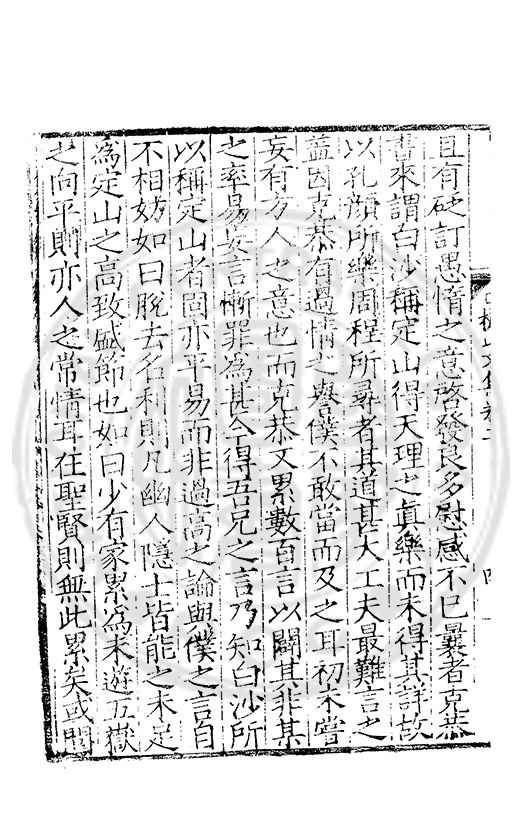 且有砭訂愚惰之意啓發良多慰感不已曩者克恭
書來謂白沙稱定山得天理之真樂而未得其詳故
以孔顏所樂周程所尋者其道甚大工夫最難言之
蓋因克恭有過情之譽僕不敢當而及之耳初未嘗
妄有方人之意也而克恭又累數百言以闢其非某
之率易妄言慚罪為甚今得吾兄之言乃知白沙所
以稱定山者固亦平易而非過高之論與僕之言自
不相妨如曰脫去名利則凡幽人隱士皆能之未足
為定山之高致盛節也如曰少有家累為未遊五嶽
之向平則亦人之常情耳在聖賢則無此累矣或聞